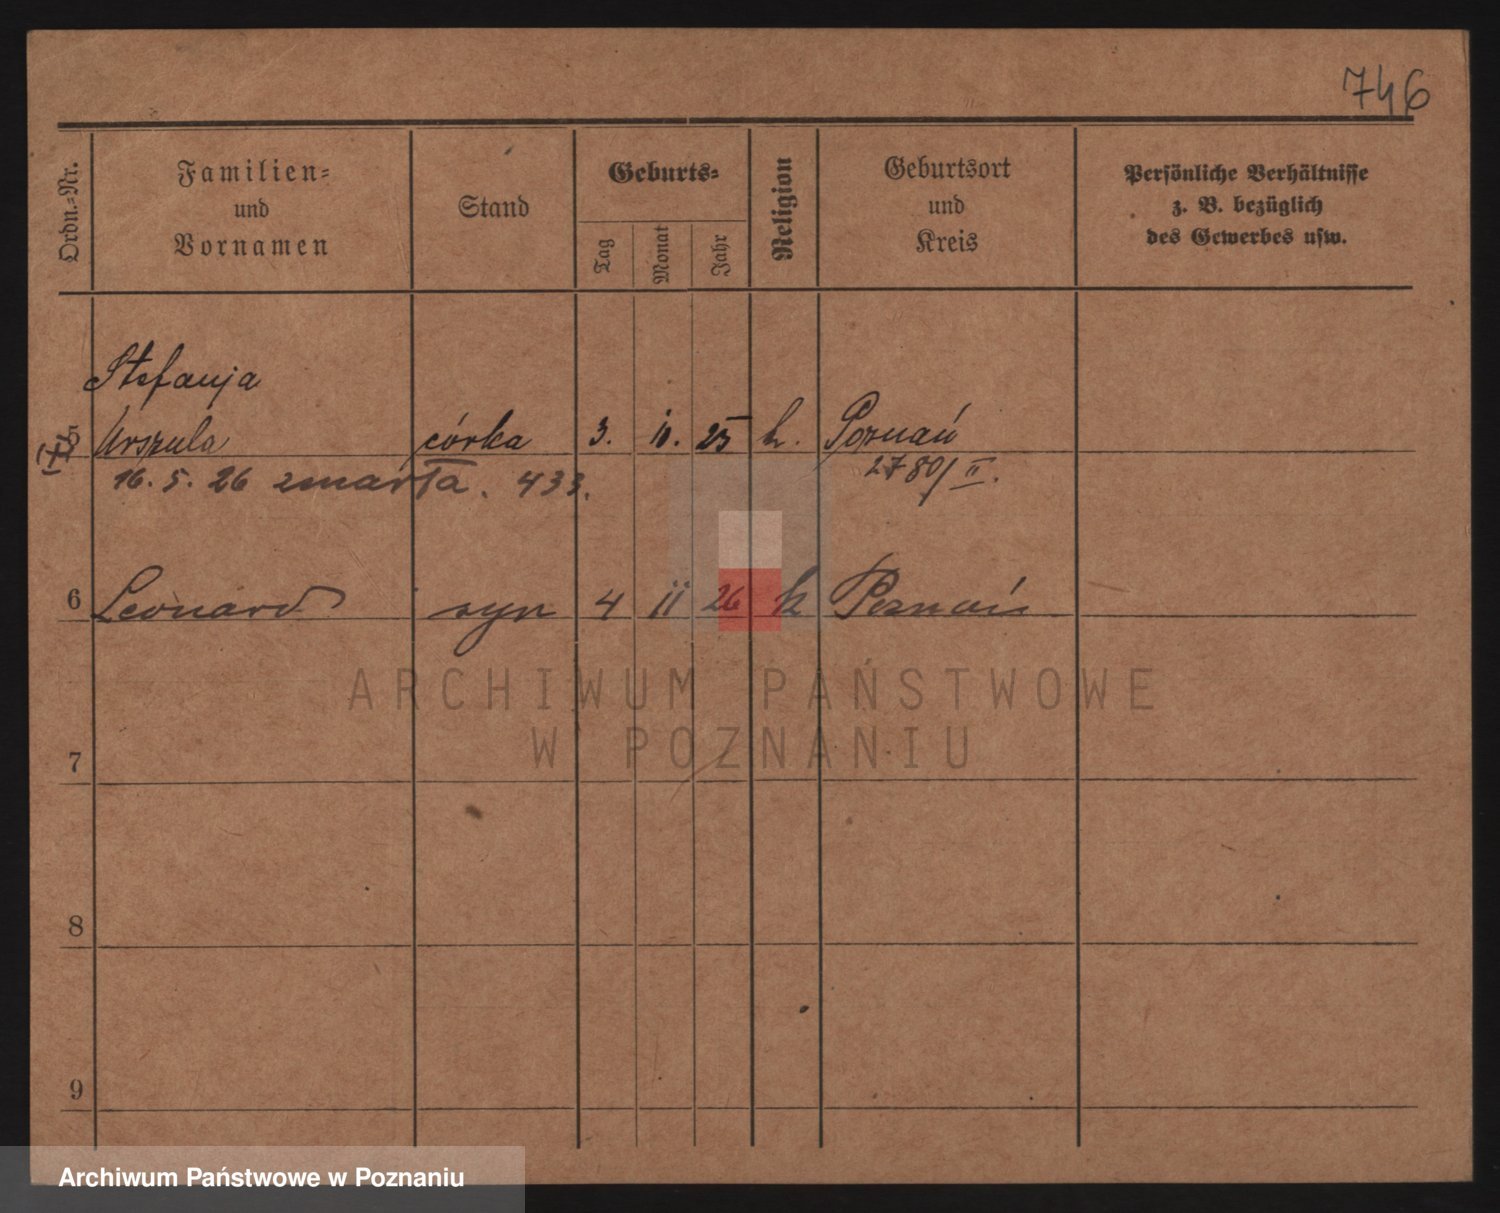 746
Ordn.-Nr.
Familien-
und
Vornamen
Stand
Geburts-
Tag
Monat
Jahr
Religion
Geburtsort
und
Kreis
Persönliche Verhältnisse
z. B. bezüglich
des Gewerbes usw.
Stefanja
5 Urszula córka 3. 10. 25 k. Poznań
2780/II.
16. 5. 26 zmarła. 433.
6 Leonard syn 4 11 26 k Poznań
ARCHIWUM PAŃSTWOWE
W POZNANIU
7
8
9
Archiwum Państwowe w Poznaniu